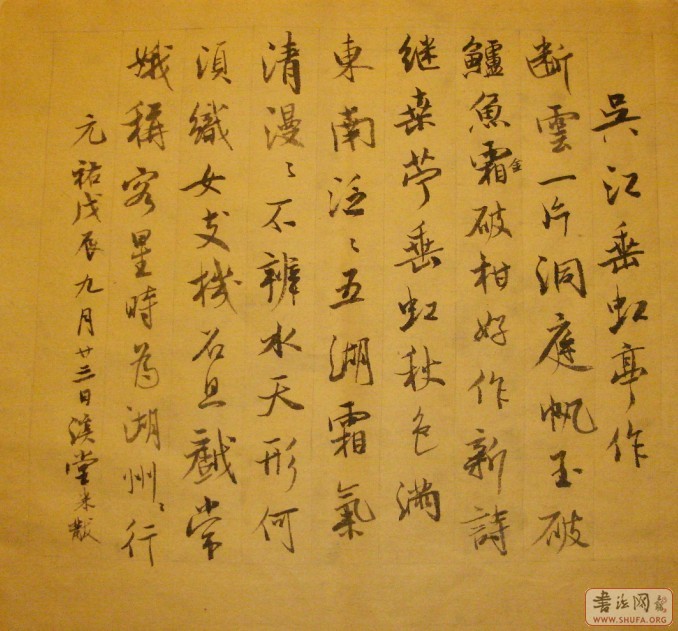 吳江垂虹亭作
断雲一片洞庭帆玉破
鱸魚霜金破柑好作新詩
继桑苧垂虹秋色满
東南泛〻五湖霜氣
清漫〻不辨水天形何
須織女支機石且戲常
娥稱客星時为湖州〻行
元祐戊辰九月廿三日溪堂米黻
書法网
WWW.SHUFA.ORG